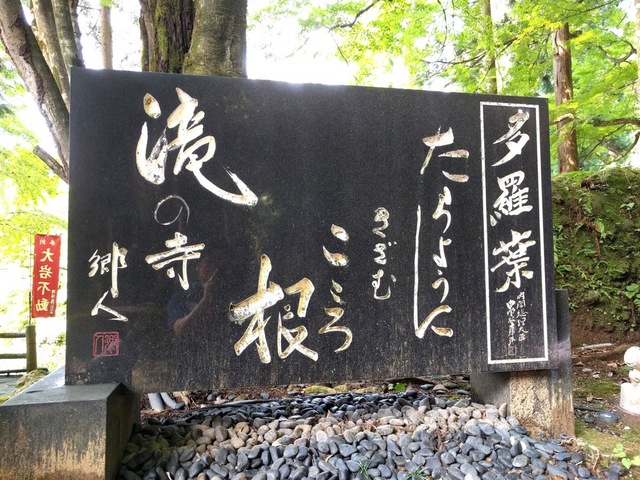 多羅葉
たらように
きざむ
こころ
根
滝の寺
郷人
奉納
大岩不動